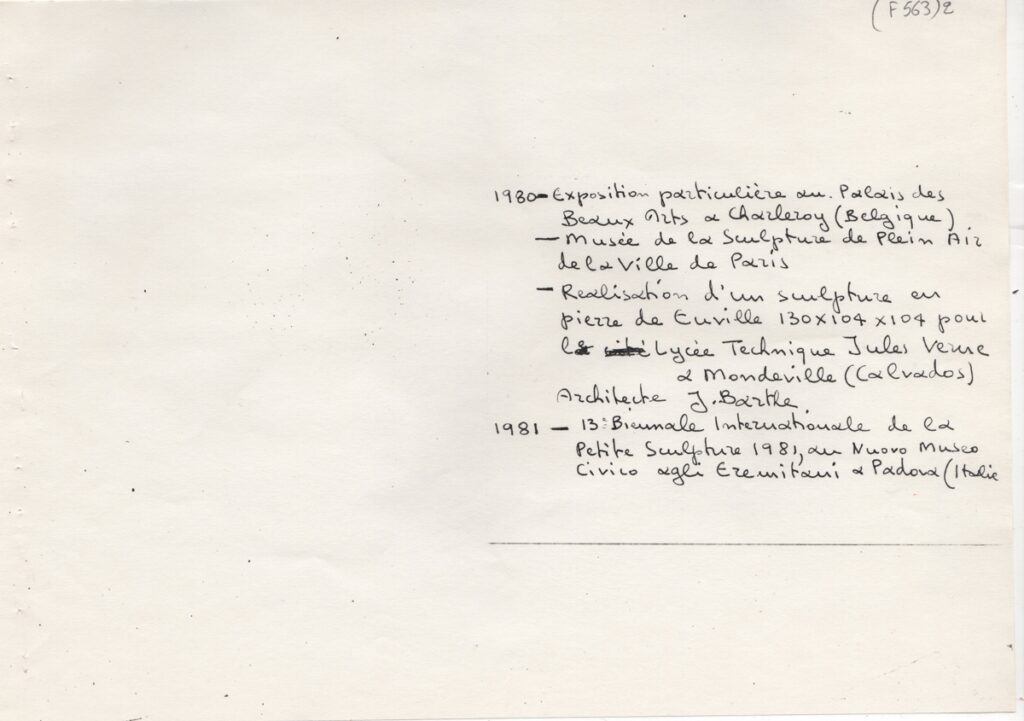 (F 563)2
1980 - Exposition particulière au. Palais des
Beaux Arts a Charleroy (Belgique)
- Musée de la Sculpture de Plein Air
de la Ville de Paris
- Realisation d'un sculpture en
pierre de Euville 130x104x104 pour
le Lycée Technique Jules Verne
a Mondeville (Calvados)
Architecte J. Barthe.
1981 - 13e Biennale Internationale de la
Petite Sculpture 1981, au Nuovo Museo
Civico agli Eremitani a Padova (Italie